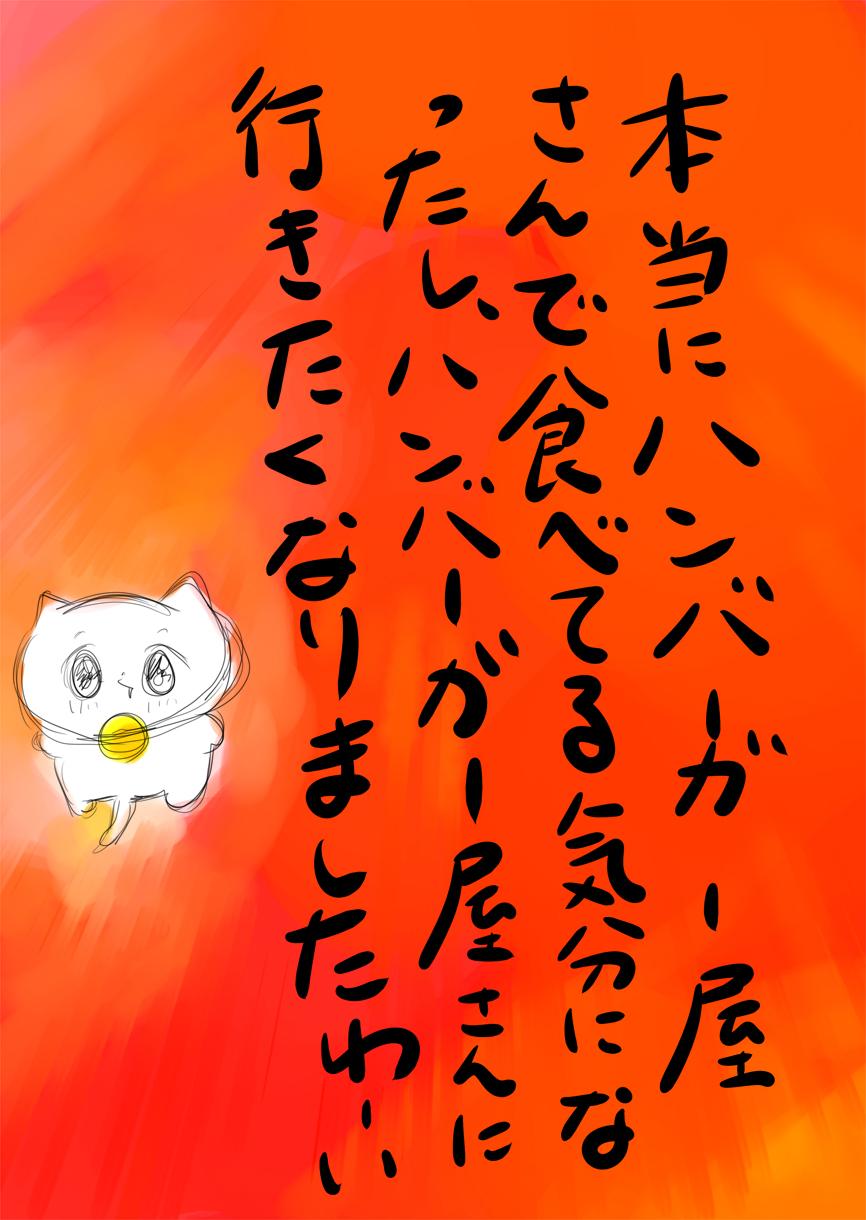 本当にハンバーガー屋
さんで食べてる気分にな
ったし、ハンバーガー屋さんに
行きたくなりましたわーい